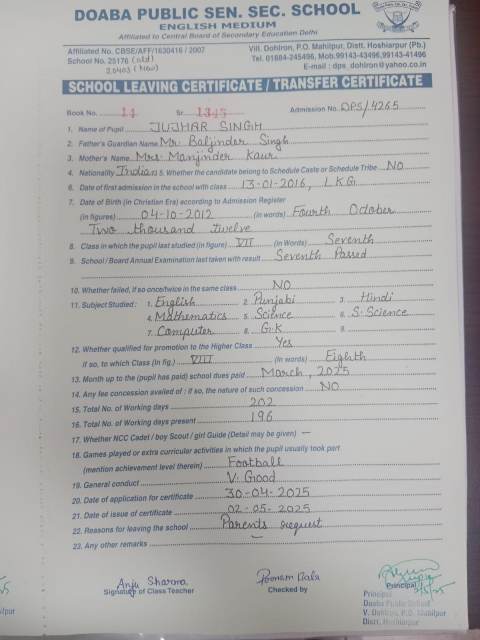 DOABA PUBLIC SEN. SEC. SCHOOL
ENGLISH MEDIUM
Affiliated to Central Board of Secondary Education Delhi
Affiliated No. CBSE/AFF/1630416 / 2007
School No. 25176 (old)
20403 (New)
Vill. Dohlron, P.O. Mahilpur, Distt. Hoshiarpur (Pb.)
Tel. 01884-245496, Mob.99143-43496,99143-41496
E-mail : dps_dohlron@yahoo.co.in
SCHOOL LEAVING CERTIFICATE / TRANSFER CERTIFICATE
Book No. 14 Sr. 1345 Admission No. DPS/4265
1. Name of Pupil JUJHAR SINGH
2. Father's Guardian Name Mr. Baljinder Singh
3. Mother's Name Mrs. Manjinder Kaur
4. Nationality Indian 5. Whether the candidate belong to Schedule Caste or Schedule Tribe NO
6. Date of first admission in the school with class 13-01-2016, LKG
7. Date of Birth (in Christian Era) according to Admission Register
(in figures) 04-10-2012 (in words) Fourth October
Two thousand twelve
8. Class in which the pupil last studied (in figure) VII (in Words) Seventh
9. School / Board Annual Examination last taken with result Seventh Passed
10. Whether failed, if so once/twice in the same class NO
11. Subject Studied : 1. English 2. Punjabi 3. Hindi
4. Mathematics 5. Science 6. S. Science
7. Computer 8. G.K 9.
12. Whether qualified for promotion to the Higher Class Yes
if so, to which Class (in fig.) VIII (in words) Eighth
13. Month up to the (pupil has paid) school dues paid March, 2025
14. Any fee concession availed of : if so, the nature of such concession NO
15. Total No. of Working days 202
16. Total No. of Working days present 196
17. Whether NCC Cadet / boy Scout / girl Guide (Detail may be given) —
18. Games played or extra curricular activities in which the pupil usually took part
(mention achievement level therein) Football
19. General conduct V. Good
20. Date of application for certificate 30-04-2025
21. Date of issue of certificate 02-05-2025
22. Reasons for leaving the school Parents request
23. Any other remarks —
Anju Sharma
Signature of Class Teacher
Poonam Bala
Checked by
Principal
Principal
Doaba Public School
V. Dohlron, P.O. Mahilpur
Distt. Hoshiarpur